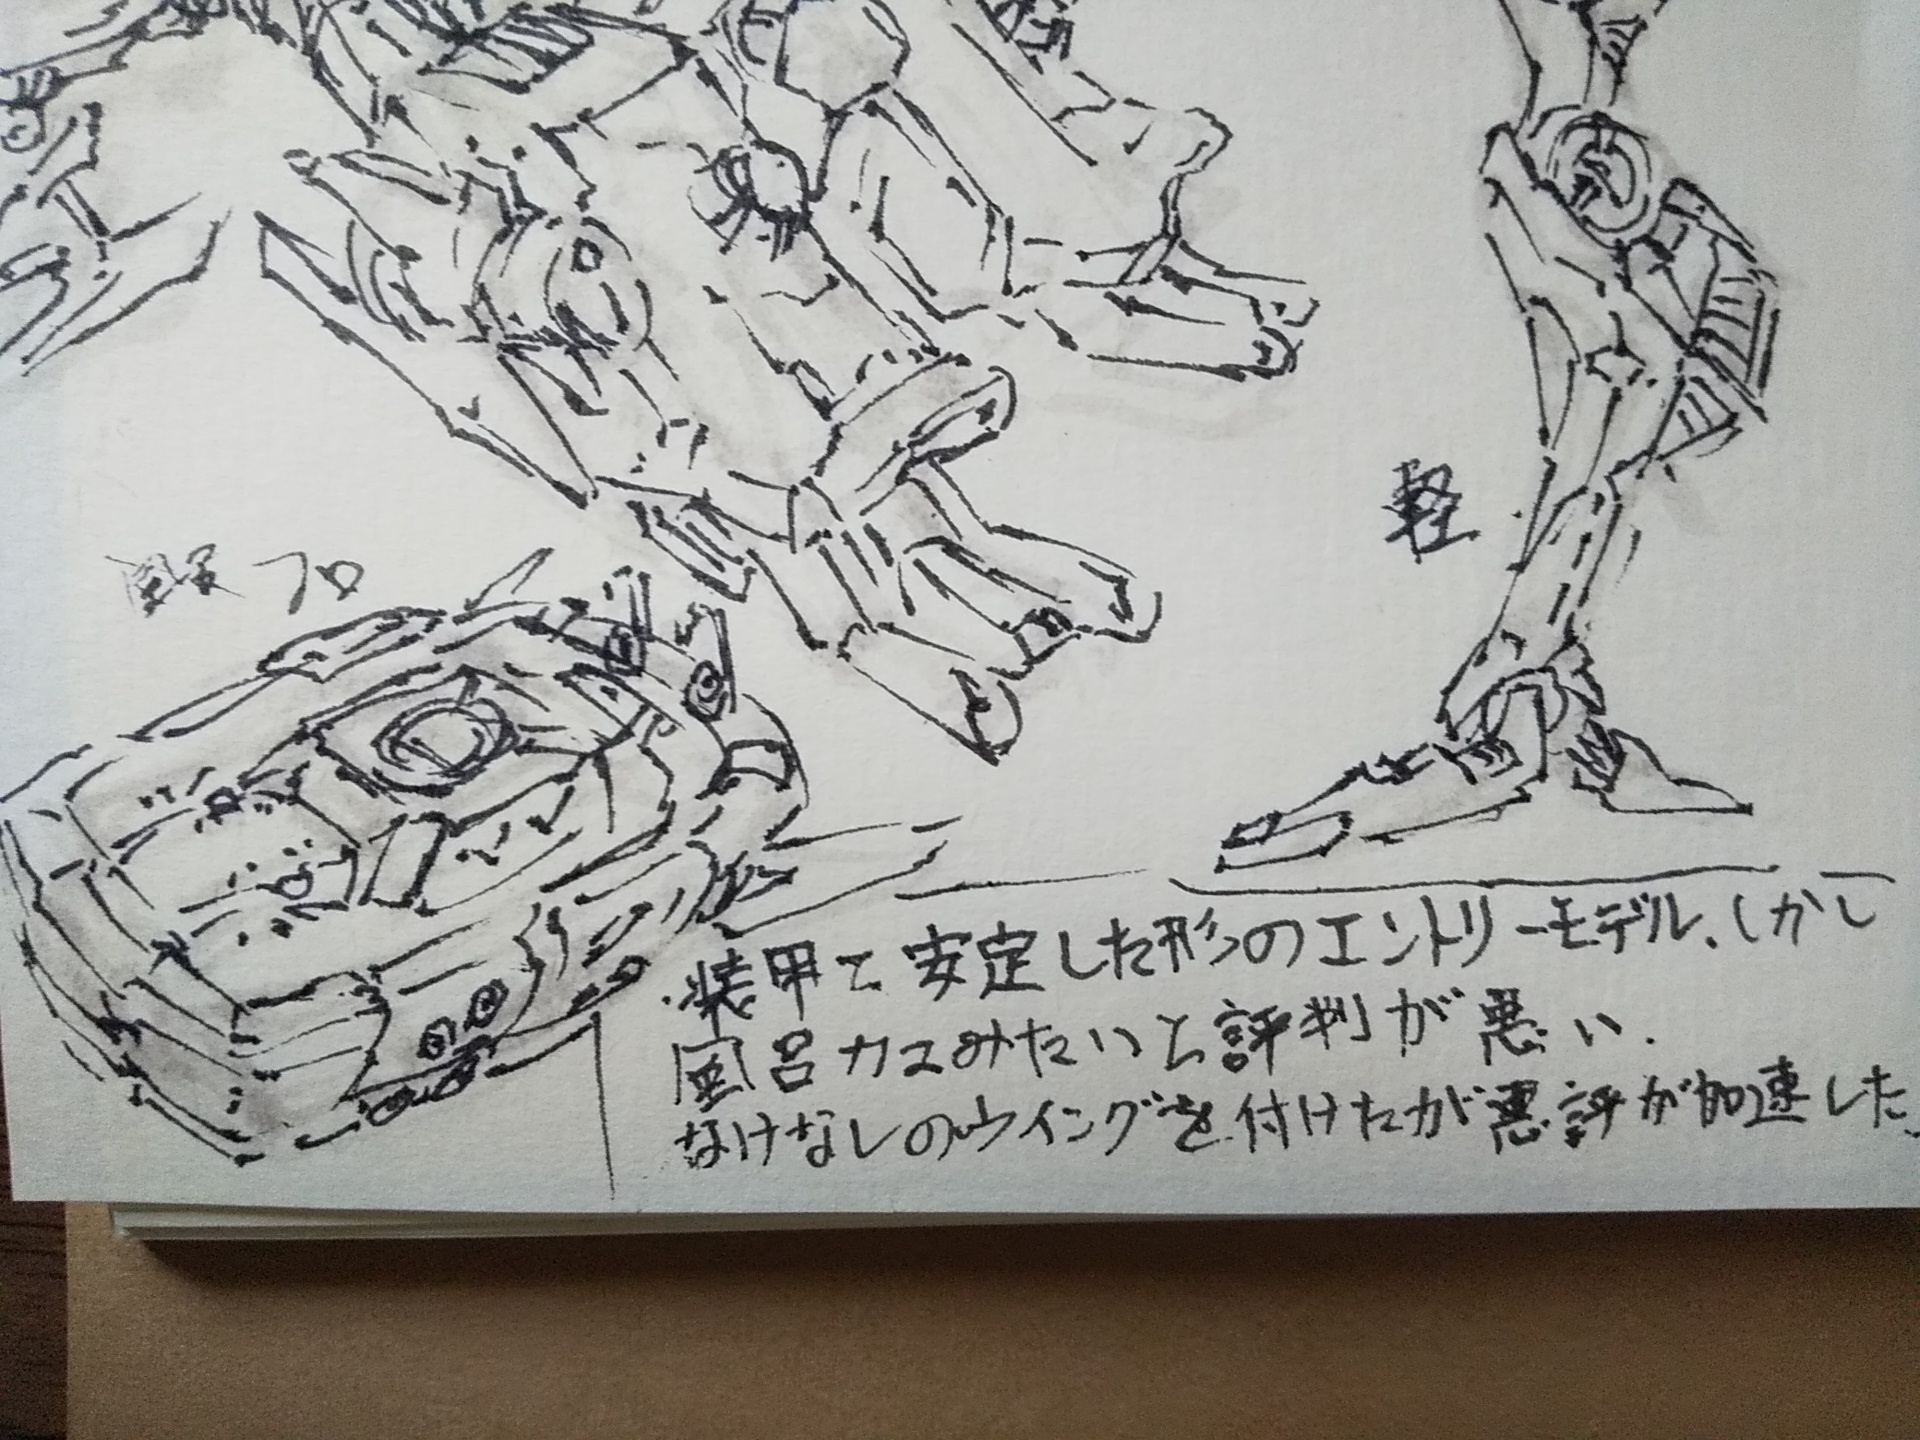 軽
フロ
装甲で安定した形のエントリーモデル、しかし
風呂カマみたいと評判が悪い.
なけなしのウイングを付けたが悪評が加速した